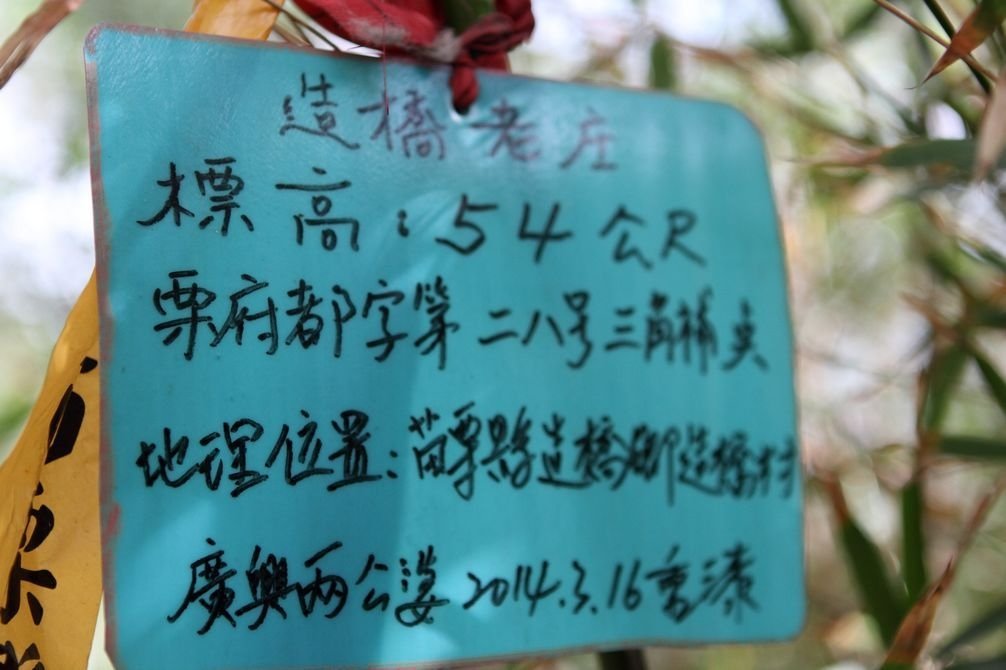 造橋老庄
標高：54公尺
栗府都字第二八号三角補点
地理位置：苗栗縣造橋鄉造橋村
廣興兩公婆 2014.3.16重漆